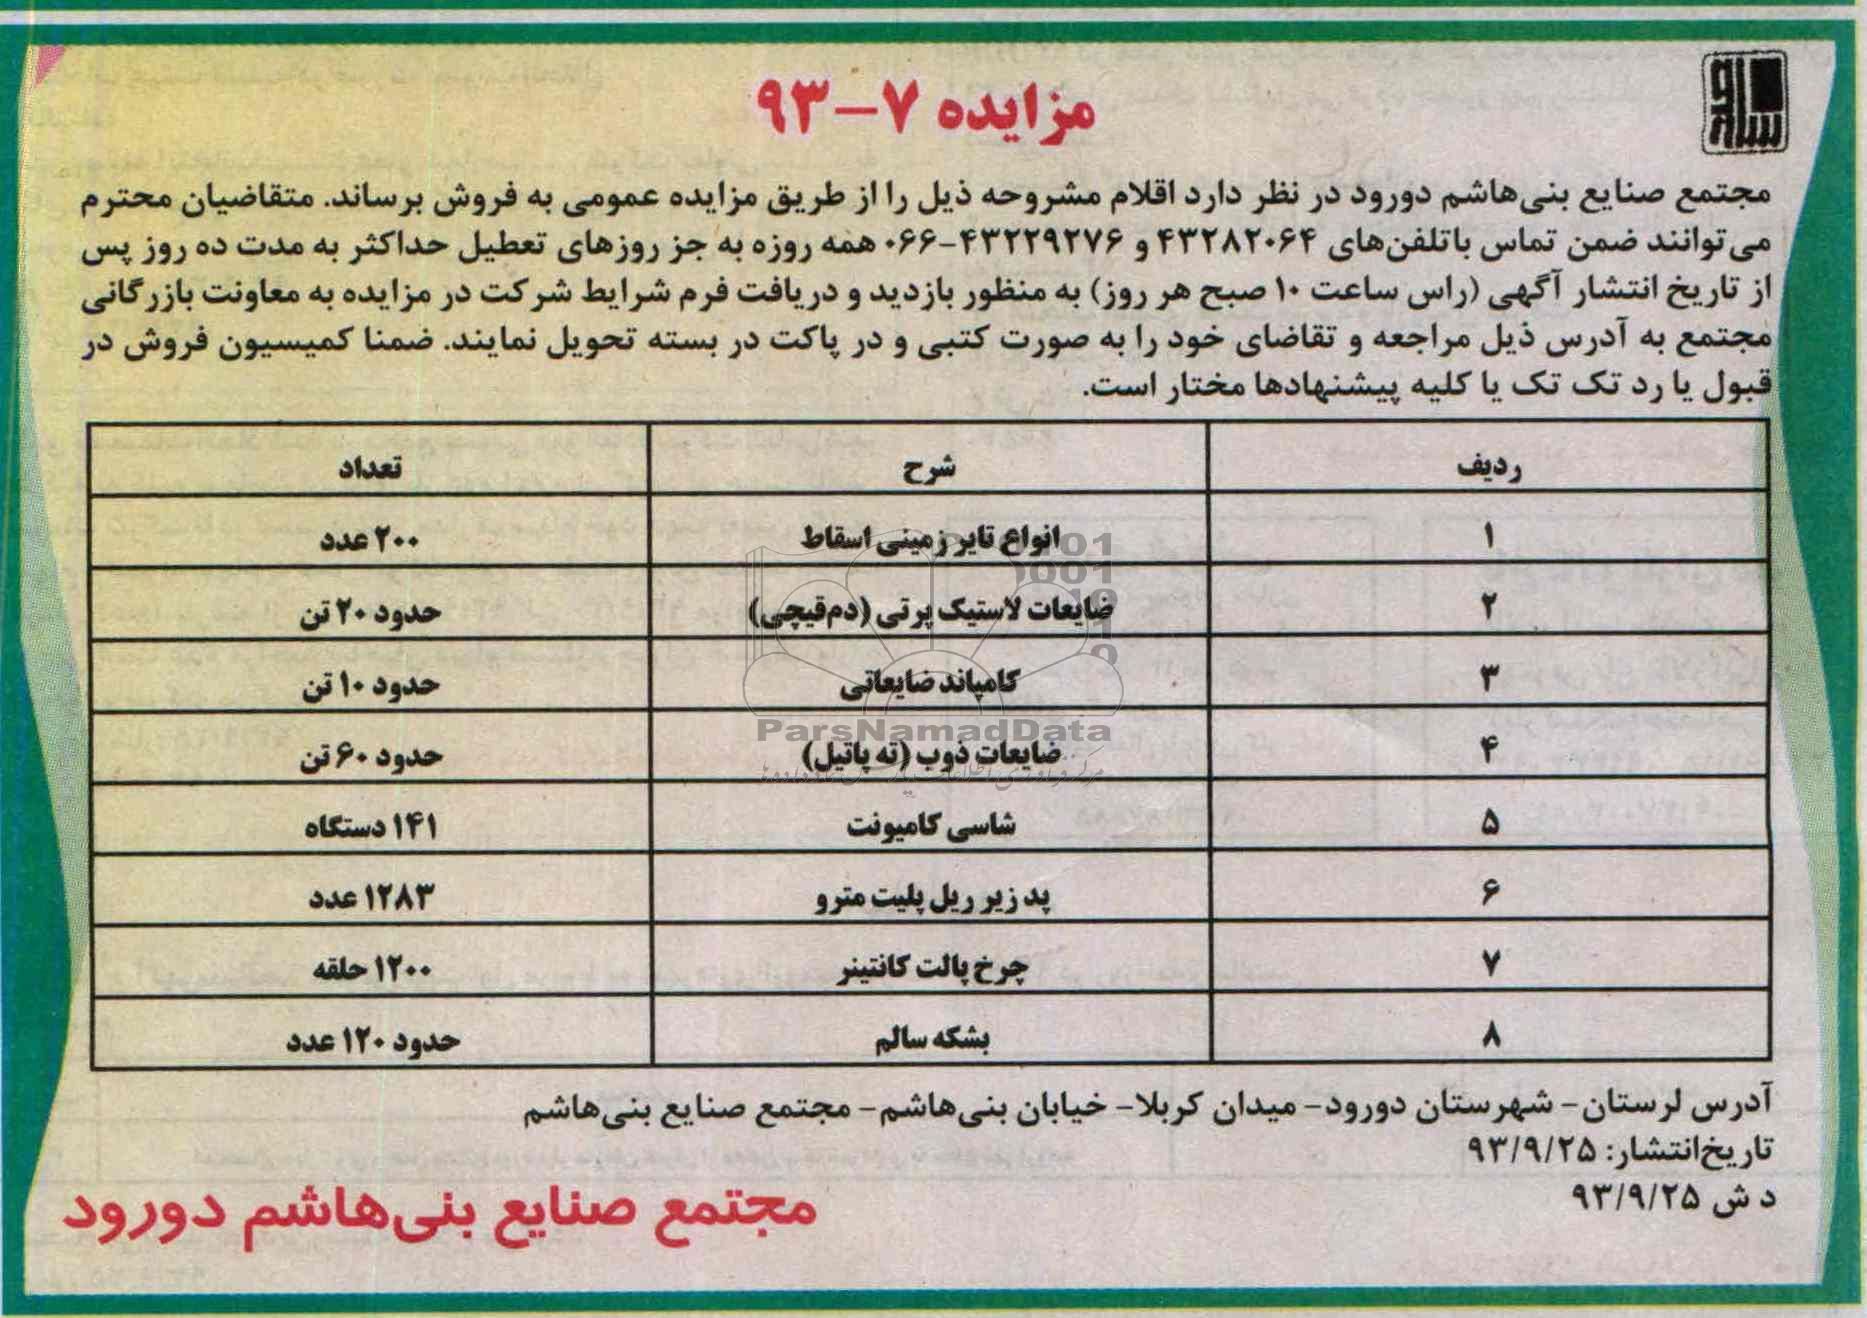 مزایده ۷-۹۳
مجتمع صنایع بنی‌هاشم دورود در نظر دارد اقلام مشروحه ذیل را از طریق مزایده عمومی به فروش برساند. متقاضیان محترم
می‌توانند ضمن تماس با تلفن‌های ۴۳۲۸۲۰۶۴ و ۴۳۲۲۹۲۷۶-۰۶۶ همه روزه به جز روزهای تعطیل حداکثر به مدت ده روز پس
از تاریخ انتشار آگهی (راس ساعت ۱۰ صبح هر روز) به منظور بازدید و دریافت فرم شرایط شرکت در مزایده به معاونت بازرگانی
مجتمع به آدرس ذیل مراجعه و تقاضای خود را به صورت کتبی و در پاکت در بسته تحویل نمایند. ضمنا کمیسیون فروش در
قبول یا رد تک تک یا کلیه پیشنهادها مختار است.
ردیف شرح تعداد
۱ انواع تایر زمینی اسقاط ۲۰۰ عدد
۲ ضایعات لاستیک پرتی (دم‌قیچی) حدود ۲۰ تن
۳ کامپاند ضایعاتی حدود ۱۰ تن
۴ ضایعات ذوب (ته پاتیل) حدود ۶۰ تن
۵ شاسی کامیونت ۱۴۱ دستگاه
۶ پد زیر ریل پلیت مترو ۱۲۸۳ عدد
۷ چرخ پالت کانتینر ۱۲۰۰ حلقه
۸ بشکه سالم حدود ۱۲۰ عدد
ParsNamadData
آدرس لرستان- شهرستان دورود- میدان کربلا- خیابان بنی‌هاشم- مجتمع صنایع بنی‌هاشم
تاریخ انتشار: ۹۳/۹/۲۵
د ش ۹۳/۹/۲۵
مجتمع صنایع بنی‌هاشم دورود